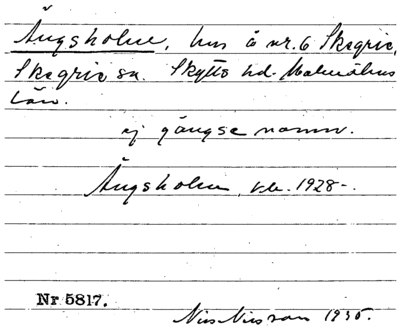 Ängsholm, hus å nr. 6 Skegrie,
Skegrie sn. Skytts hd. Malmöhus
län.
ej gängse namn.
Ängsholm, v.b. 1928-.
Nr 5817.
Nils Nilsson 1935.